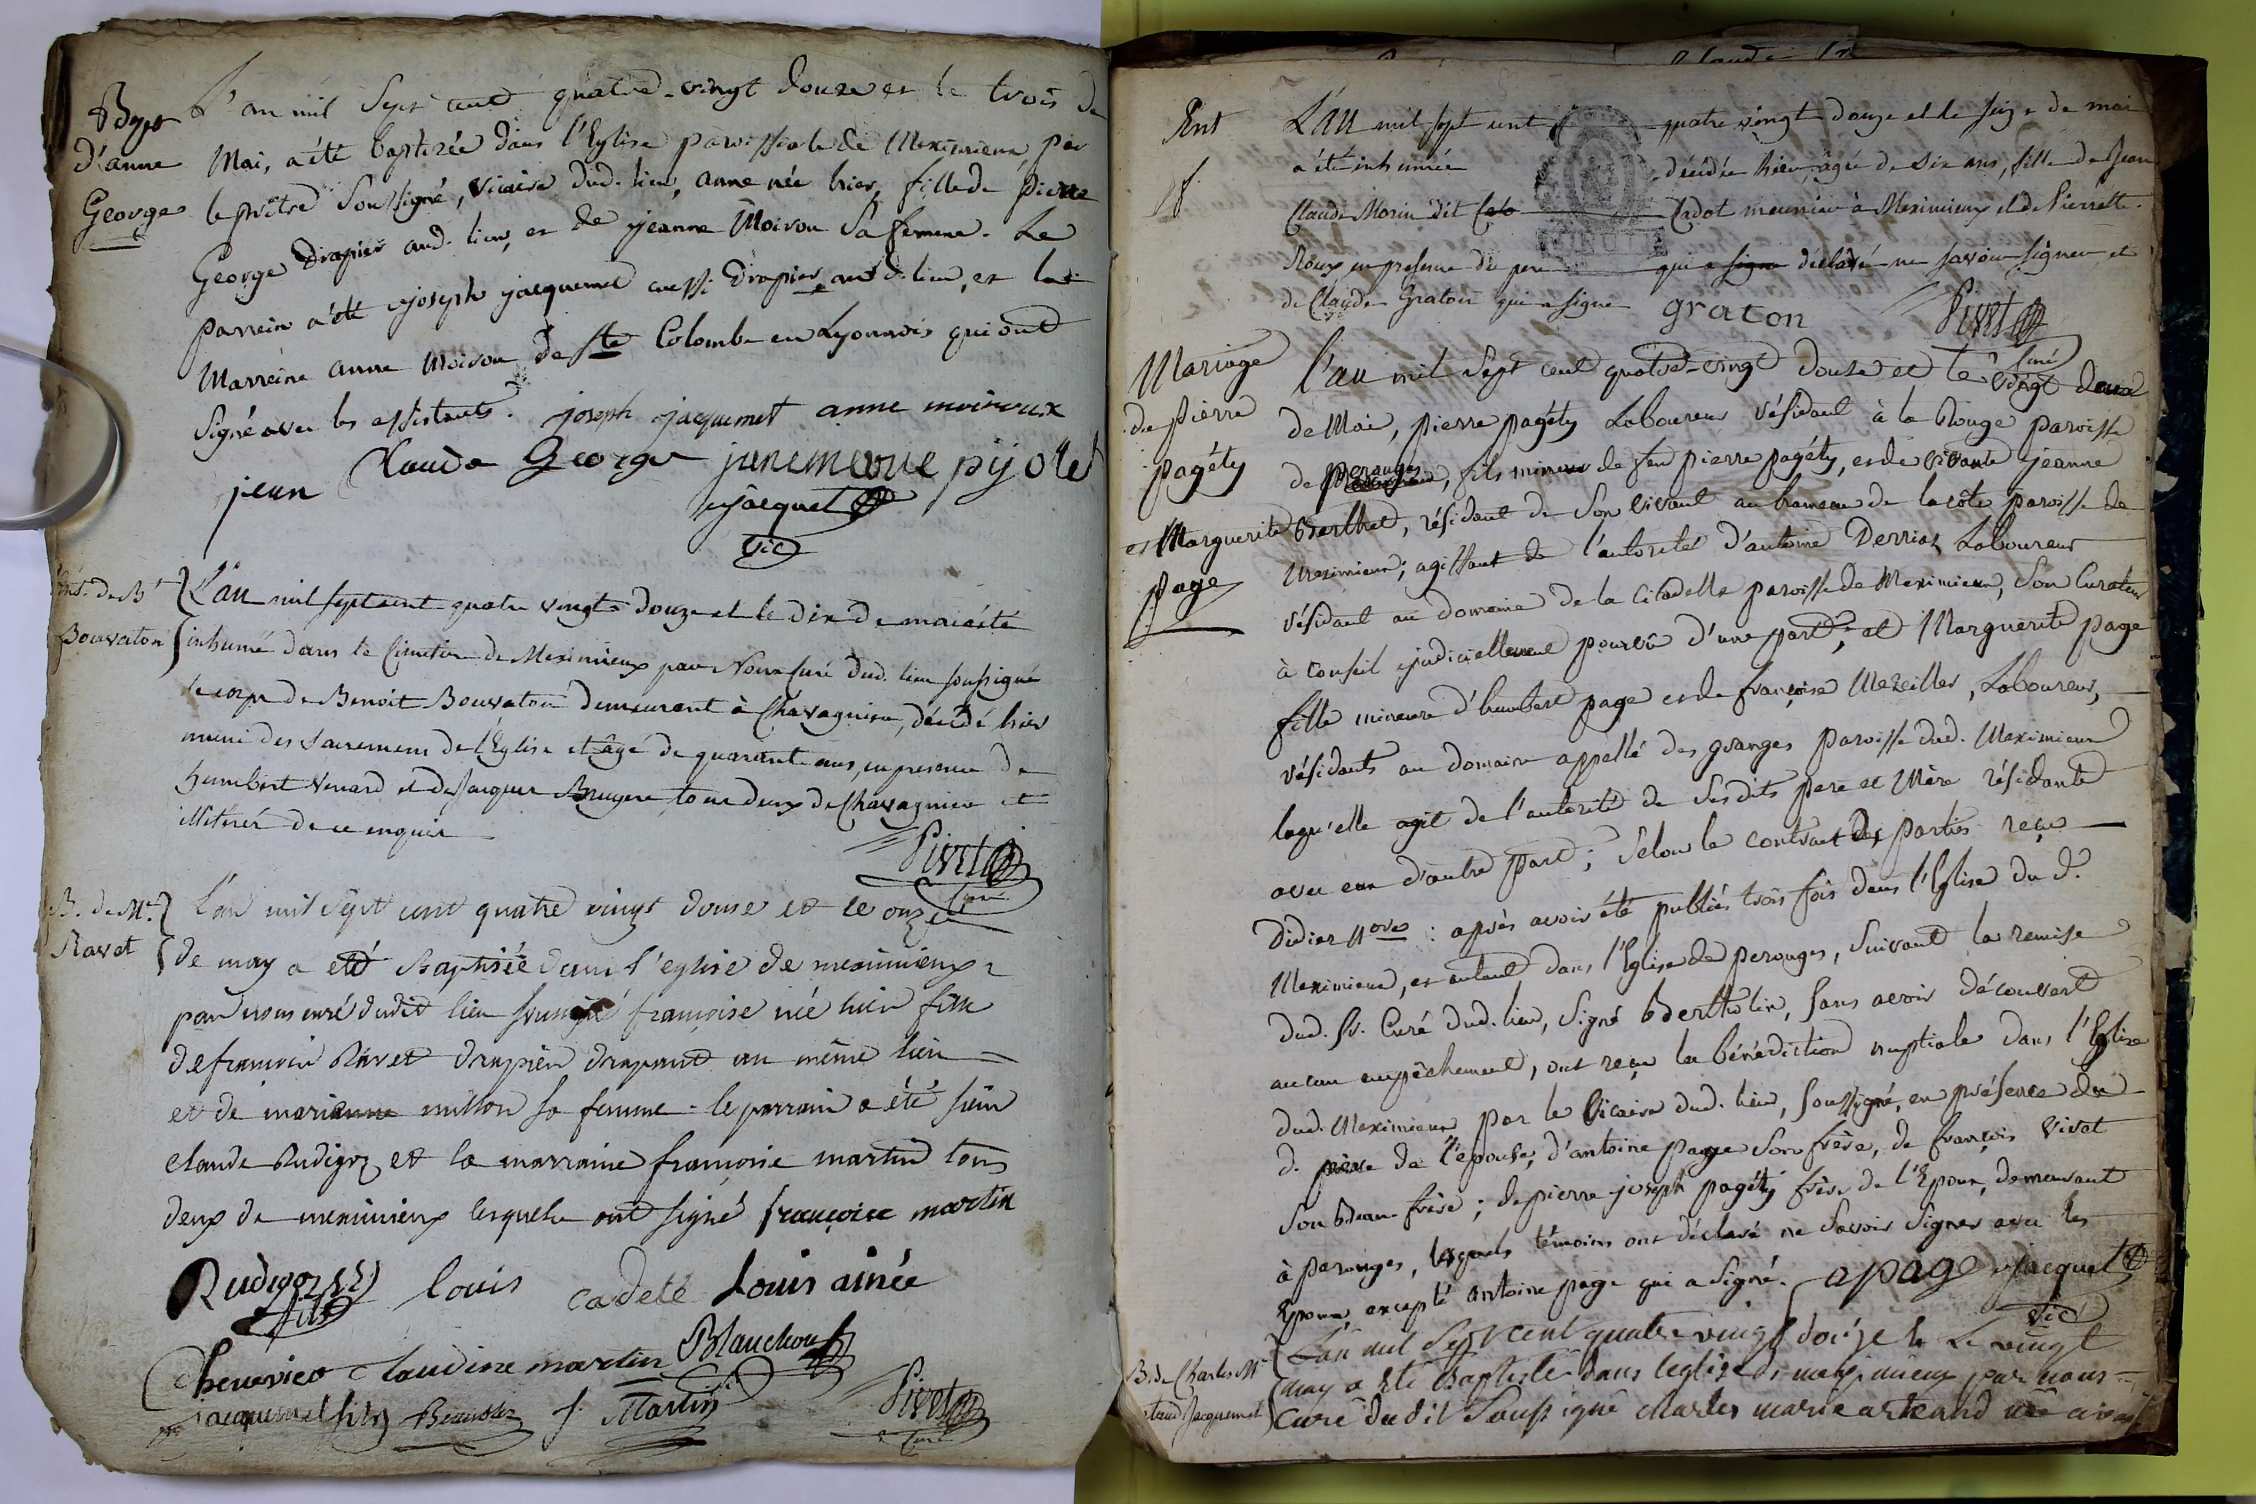 Bap.
d'anne
George
L'an mil Sept cent quatre-vingt douze et le trois de
Mai, a été baptisée dans l'Eglise paroissiale de Meximieux par
le prêtre Soussigné, vicaire dud. lieu, anne née hier, fille de pierre
George drapier aud. lieu, et de jeanne Moirou Sa femme. Le
parrein a été joseph jacquemet aussi drapier aud. lieu, et la
Marreine anne Moirou de Ste Colombe en Lyonnois qui ont
Signé avec les assistants. joseph jacquemet anne moiroux
jean Claude George pijolet
Jacquet
vic
Ent. de Bt
Bouvaton
L'an mil sept cent quatre vingt douze et le dix de mai a été
inhumé dans le Cimetiere de Meximieux par Nous Curé dud. lieu soussigné
le corps de Benoit Bouvaton demeurant à Chavagnieu, décédé hier
muni des Sacremens de l'Eglise et âgé de quarante ans, en presence de
humbert Venard et de Jacques Bruyere tous deux de Chavagnieu et
illiterés de ce enquis
Pivet
Curé
B. de Mlle
Ravet
L'an mil Sept cent quatre vingt douse et le onze
de may a eté Baptisée dans l'eglise de meximieux
par nous curé dudit lieu soussigné françoise née hier fille
de françois Ravet drapier drapant au même lieu
et de marianne milton sa femme - le parrain a été sieur
claude Rudigoz et la marraine françoise martin tous
deux de meximieux lesquels ont signé françoise martin
Rudigoz fils louis cadete Louis ainée
Chenevier Claudine martin Blanchon
jacquemet fils f. Martin Pivet
Curé
Ent
L'an mil sept cent quatre vingt douze et le seize de mai
a été inhumée décédée hier, agée de six ans, fille de Jean
Claude Morin dit Cadot meunier à Meximieux et de Pierrette
Roux en presence du pere qui a signe déclaré ne savoir signer et
de Claude Graton qui a signe graton Pivet
Curé
Mariage
de pierre
pagéty
et Marguerite
page
l'an mil Sept cent quatre-vingt douze et le vingt deux
de Mai, pierre pagéty Laboureur résidant à la Rouge paroisse
de perouges, fils mineur de feu pierre pagéty, et de vivante jeanne
Berthet, résidant de Son vivant au hameau de la côte paroisse de
Meximieux; agissant de l'autorité d'antoine Derriaz Laboureur
résidant au domaine de la Citadelle paroisse de Meximieux, Son Curateur
à Conseil judiciellement pourvû d'une part; et Marguerite page
fille mineure d'humbert page et de françoise Mezeilles, Laboureur,
résidants au domaine appellé des granges paroisse dud. Meximieux
laquelle agit de l'autorité de Sesdits pere et Mère résidante
avec eux d'autre part; Selon le contract des parties reçu
Didier Nore : après avoir été publiés trois fois dans l'Eglise du d.
Meximieux, et autant dans l'Eglise de perouges, Suivant la remise
dud. Sr. Curé dud. lieu, Signé Bertholin, Sans avoir découvert
aucun empêchement, ont reçu la bénédiction nuptiale dans l'Eglise
dud. Meximieux par le Vicaire dud. lieu, Soussigné, en présence du
d. père de l'épouse, d'antoine page Son frère, de françois Vivat
Son Beau-frère; de pierre joseph pagéty frère de l'Epoux, demeurant
à perouges, lesquels témoins ont déclaré ne Savoir Signer avec les
Epoux, excepté Antoine page qui a Signé. apage Jacquet
Vic
B. de Charles Me
Jacquemet
L'an mil Sept cent quatre vingt douze & Le vingt
may a été Baptisé dans leglise de meximieux par nous
Curé dudit Soussigné charles marie